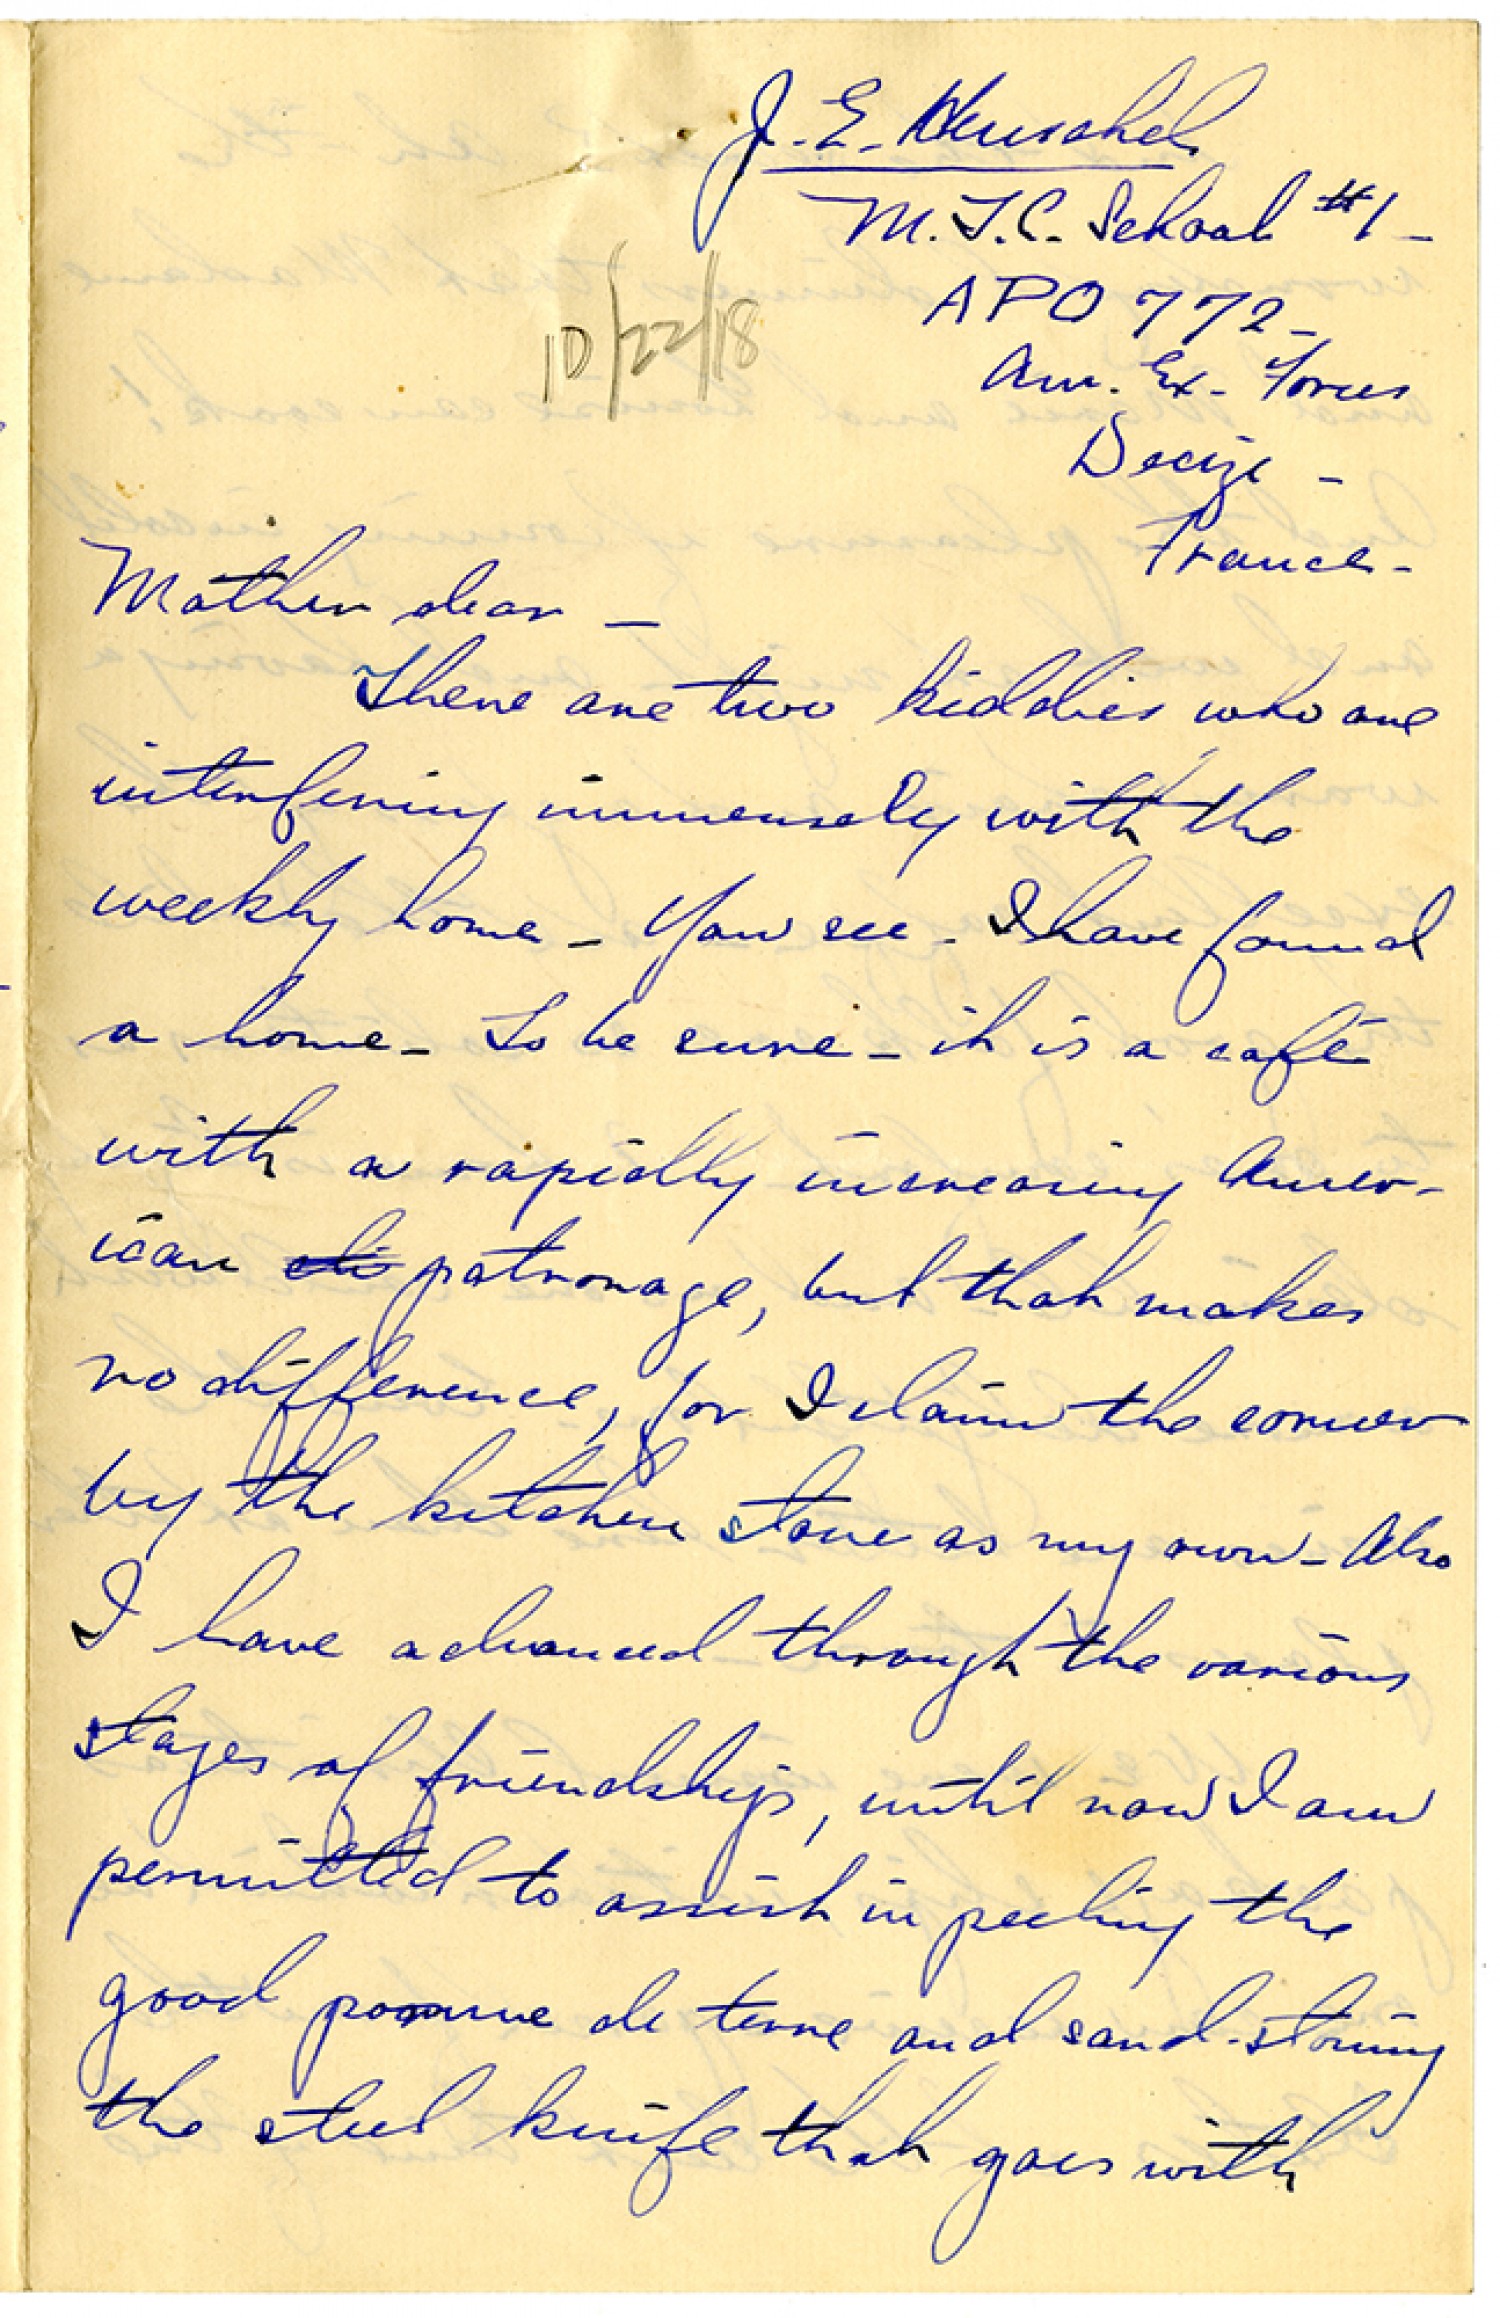 J. E. Henschel
M.T.C. School #1 -
APO 772 -
10/22/18
Am. Ex. Forces
Decize -
France -
Mother dear -
There are two kiddies who are
interfering immensely with the
weekly home - You see - I have found
a home - To be sure - it is a café
with a rapidly increasing Amer-
ican cli patronage, but that makes
no difference, for I claim the corner
by the kitchen stove as my own - Also
I have advanced through the various
stages of friendship, until now I am
permitted to assist in peeling the
good pomme de terre and sand-stoning
the steel knife that goes with